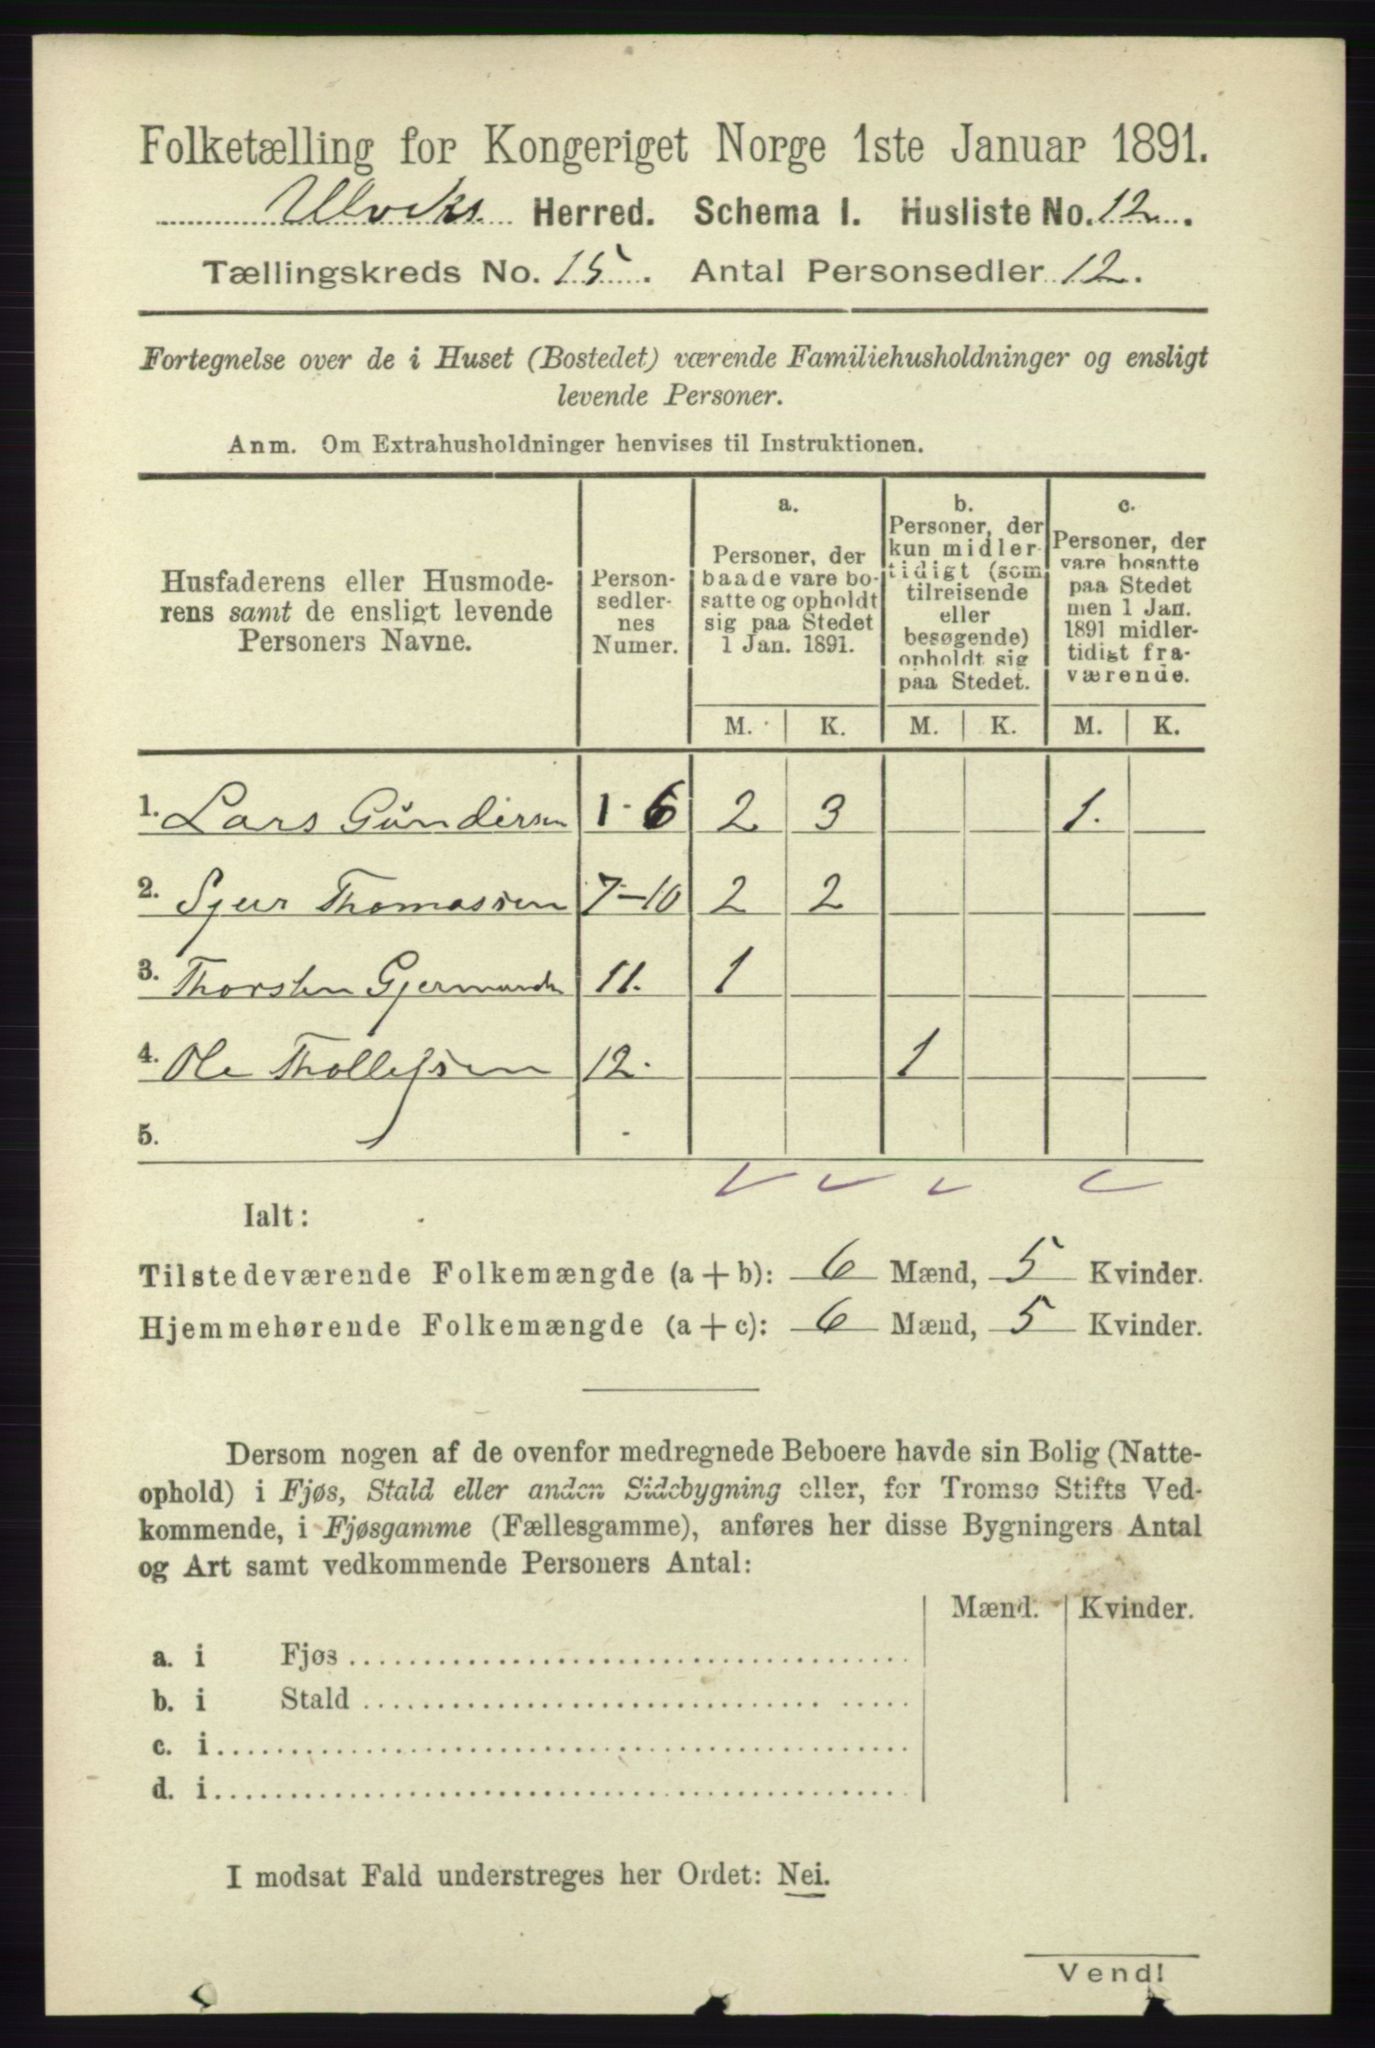 Folketælling for Kongeriget Norge 1ste Januar 1891.
Ulviks Herred. Schema I. Husliste No. 12.
Tællingskreds No. 15. Antal Personsedler 12.
Fortegnelse over de i Huset (Bostedet) værende Familiehusholdninger og ensligt
levende Personer.
Anm. Om Extrahusholdninger henvises til Instruktionen.
Husfaderens eller Husmode-
rens samt de ensligt levende
Personers Navne.
Person-
sedler-
nes
Numer.
a.
Personer, der
baade vare bo-
satte og opholdt
sig paa Stedet
1 Jan. 1891.
b.
Personer, der
kun midler-
tidigt (som
tilreisende
eller
besøgende)
opholdt sig
paa Stedet.
c.
Personer, der
vare bosatte
paa Stedet
men 1 Jan.
1891 midler-
tidigt fra-
værende.
M. K. M. K. M. K.
1. Lars Gundersen 1-6 2 3 1.
2. Sjur Thomassen 7-10 2 2
3. Thorsten Gjermunds 11. 1
4. Ole Thollefsen 12. 1
5.
Ialt:
Tilstedeværende Folkemængde (a + b): 6 Mænd, 5 Kvinder.
Hjemmehørende Folkemængde (a + c): 6 Mænd, 5 Kvinder.
Dersom nogen af de ovenfor medregnede Beboere havde sin Bolig (Natte-
ophold) i Fjøs, Stald eller anden Sidebygning eller, for Tromsø Stifts Ved-
kommende, i Fjøsgamme (Fællesgamme), anføres her disse Bygningers Antal
og Art samt vedkommende Personers Antal:
Mænd. Kvinder.
a. i Fjøs
b. i Stald
c. i
d. i
I modsat Fald understreges her Ordet: Nei.
Vend!